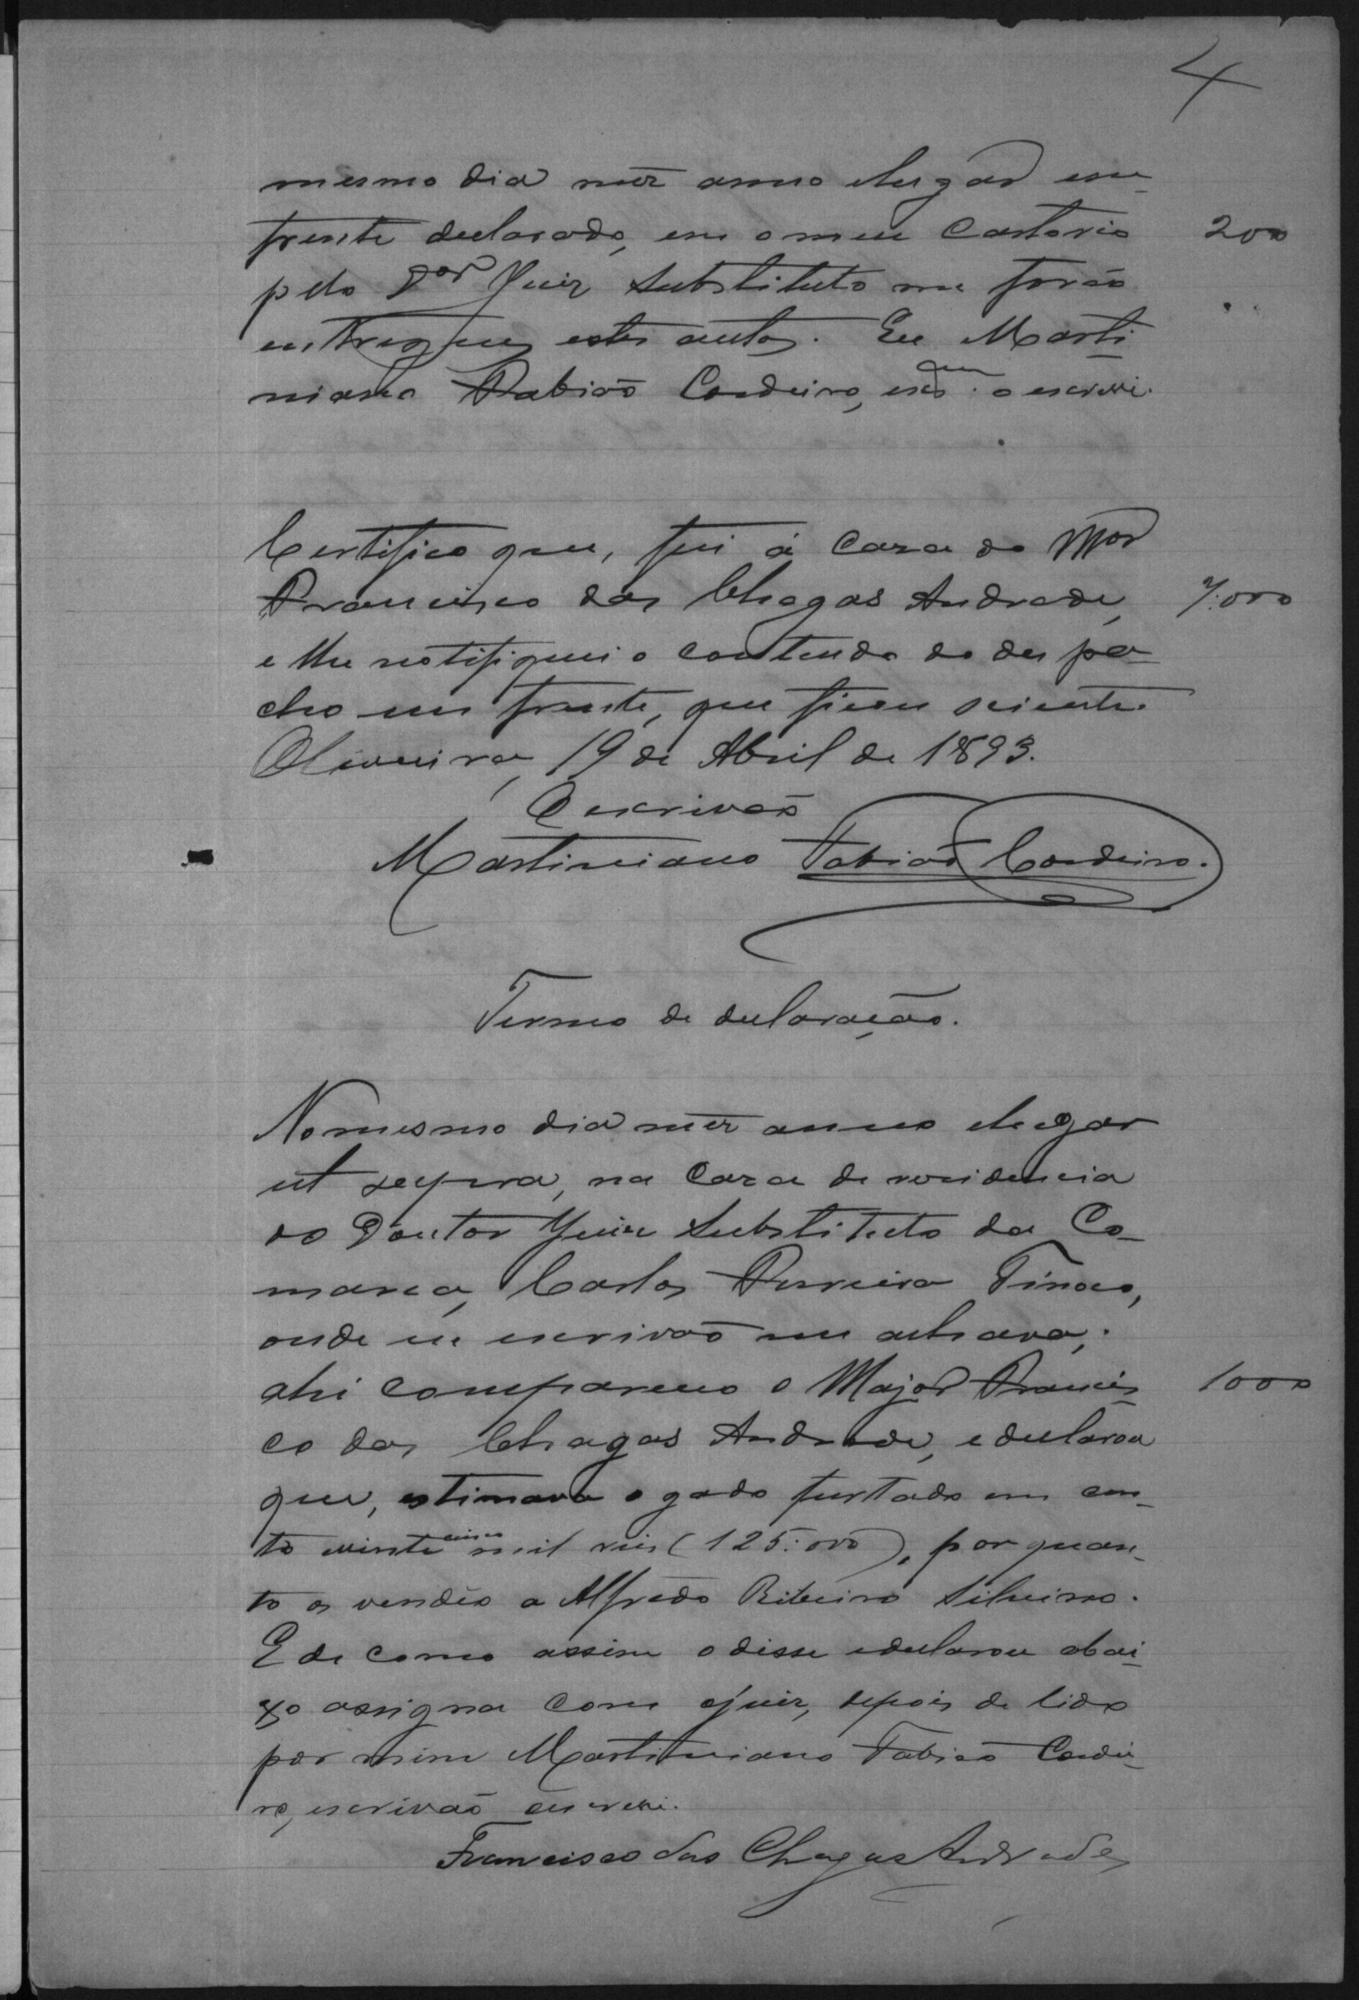 4
mesmo dia mez anno e lugar em
frente declarado, em o meu Cartorio 200
pelo Dor Juiz Substituto me forão
entregues estes autos. Eu Marti-
niano Fabião Cordeiro, escam o escrevi.
Certifico que, fui á caza do Mor
Francisco das Chagas Andrade, 7:000
e lhe notifiquei o contendo do despa-
cho em frente, que ficou sciente.
Oliveira, 19 de Abril de 1893.
O escrivão
Martiniano Fabião Cordeiro.
Termo de declaração.
No mesmo dia mez anno e lugar
ut supra, na caza de rezidencia
do Doutor Juiz Substituto da Co-
marca, Carlos Ferreira Tinoco,
onde eu escrivão me achava;
ahi compareceo o Major Francis- 1000
co das Chagas Andrade, e declarou
que, estimava o gado furtado em cen-
to vinte cinco mil reis (125:000), por quan-
to os vendêo a Alfredo Ribeiro Silveira.
E de como assim o disse e declarou abai-
xo assigna com o juiz, depois de lido
por mim Martiniano Fabião Cordei-
ro, escrivão o escrevi.
Francisco das Chagas Andrade